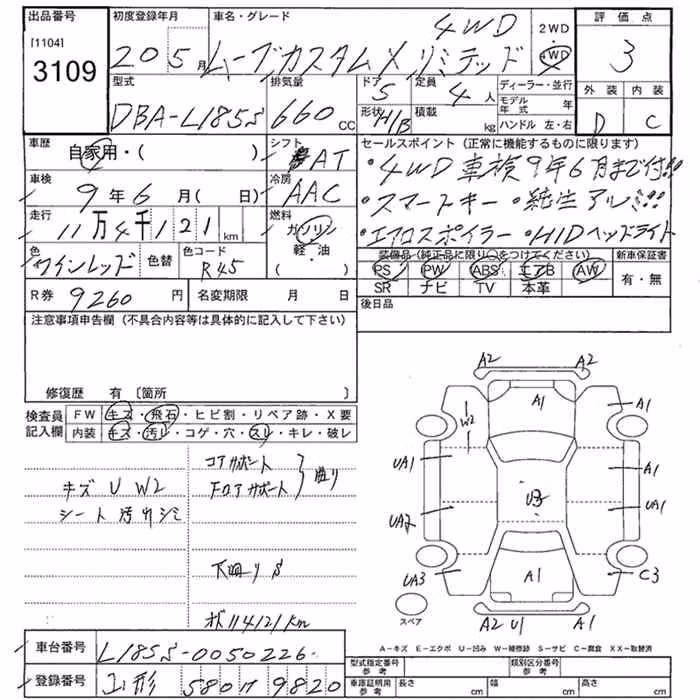 出品番号 初度登録年月 車名・グレード 評価点
[1104]
3109
20 5月 ムーブカスタムX リミテッド 4WD
2WD
4WD
3
型式 排気量 ドア 定員 ディーラー・並行 外装 内装
DBA-L185S 660 cc 5 4人 モデル年式 年
形状 H/B 積載 kg ハンドル 左・右 D C
車歴 シフト セールスポイント(正常に機能するものに限ります)
自家用・( ) AT ・4WD 車検9年6月まで付!!
車検 冷房
9年6月( 日) AAC ・スマートキー ・純生アルミ!!!
走行 燃料
11万4千121km ガソリン 軽・油 ( ) ・エアロスポイラー ・HIDヘッドライト
色 色替 色コード 装備品(純正品に限り○をつけてください) 新車保証書
ワインレッド R45 PS PW ABS エアB AW 有・無
SR ナビ TV 本革
R券 9260円 名変期限 月 日 後日品
注意事項申告欄(不具合内容等は具体的に記入して下さい)
修復歴 有 〔箇所 〕
検査員記入欄 FW キズ・飛石・ヒビ割・リペア跡・X要
内装 キズ・汚レ・コゲ・穴・スレ・キレ・破レ
コアサポート
キズ U W2 フロアサポート 曲り
シート汚れシミ
下廻りS
オド114121km
A2 A2
A1 A1
W2
UA1 A1
UA2 U3 UA1
UA3 A1 C3
A2 U1 A1
スペア
A-キズ E-エクボ U-凹み W-補修跡 S-サビ C-腐食 XX-取替済
車台番号 L185S-0050226 型式指定番号参考 類別区分番号参考
登録番号 山形 580 9820 車庫証明用参考 長さ cm 幅 cm 高さ cm